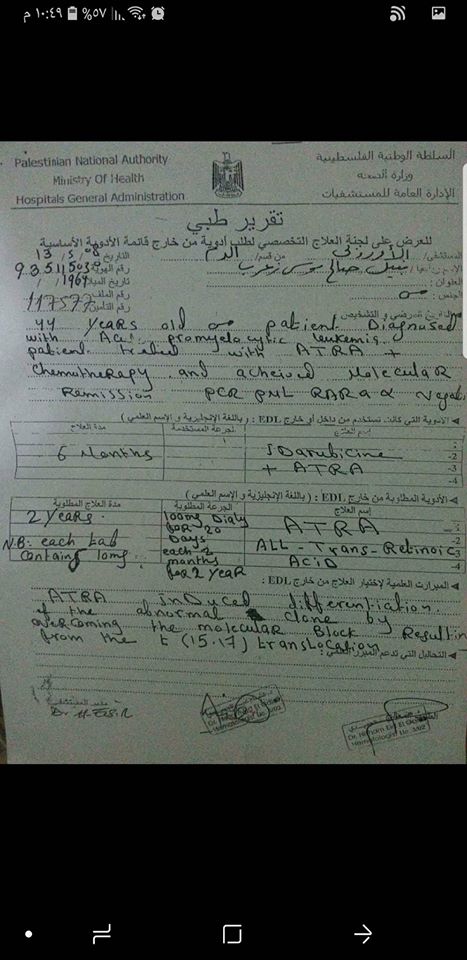 ١٠:٤٩ م ٥٧%
السلطة الوطنية الفلسطينية
Palestinian National Authority
وزارة الصحة
Ministry Of Health
الإدارة العامة للمستشفيات
Hospitals General Administration
تقرير طبي
للعرض على لجنة العلاج التخصصي لطلب أدوية من خارج قائمة الأدوية الأساسية
المستشفى: من قسم: الدم التاريخ 13 / 5 / 08
صالح رقم الهوية
العنوان: تاريخ الميلاد 1964
الجنس: رقم الملف
رقم التأمين 117577
44 years old patient Diagnosed
with Acu. promyelocytic leukemia.
patient treated with ATRA +
chemotherapy and acheived Molecular
Remission PCR PML RARA α
الأدوية التي كانت تستخدم من داخل أو خارج EDL : ( باللغة الإنجليزية و الإسم العلمي )
إسم العلاج الجرعة المستخدمة مدة العلاج
-1
-2 IDarubicine 6 Months
-3 + ATRA
-4
الأدوية المطلوبة من خارج EDL : ( باللغة الإنجليزية و الإسم العلمي )
إسم العلاج الجرعة المطلوبة مدة العلاج المطلوبة
-1 ATRA 100mg Dialy 2 Years.
-2 for 20
-3 ALL-Trans-Retinoic Days N.B: each tab
-4 AciD each 3 contains 10mg
months
for 2 year
المبررات العلمية لإختيار العلاج من خارج EDL :
ATRA inDuced differentiation
of the abnormal clone by
overcoming the molecular Block Resultin
from the t (15.17) translocation
التحاليل التي تدعم المبرر العلمي :
Dr.
Hematologist Lic. 3102
Dr. Hisham
Hematologist Lic. 3102